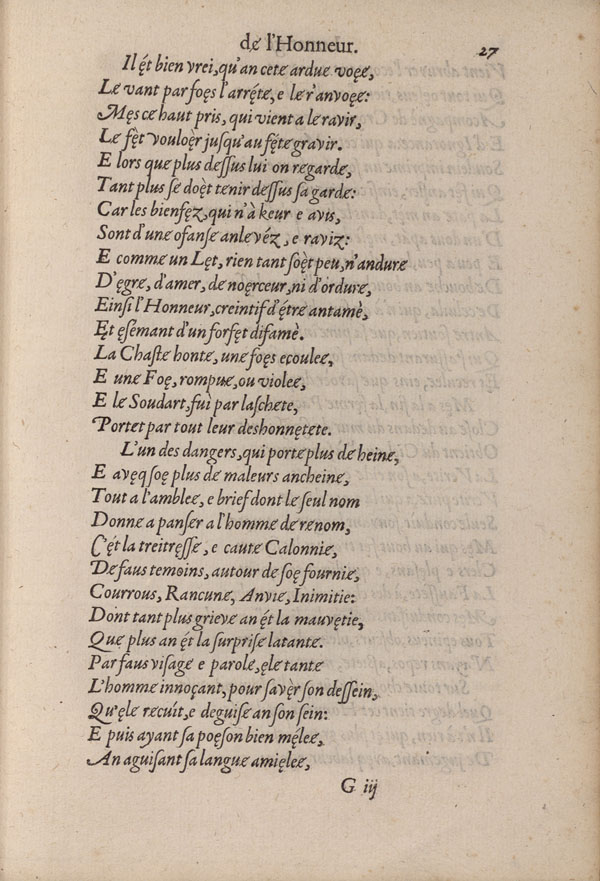 de l'Honneur. 27
Il ét bien vrei, qu'an cete ardue voęe,
Le vant par foęs l'arréte, e le r'anvoęe:
Męs ce haut pris, qui vient a le ravir,
Le fęt vouloęr jusqu'au féte gravir.
E lors que plus deſſus lui on regarde,
Tant plus ſe doęt tenir deſſus ſa garde:
Car les bienfęz, qui n'à keur e avis,
Sont d'une ofanſe anlevéz, e raviz:
E comme un Lęt, rien tant ſoęt peu, n'andure
D'ęgre, d'amer, de noęrceur, ni d'ordure,
Einſi l'Honneur, creintif d'étre antamè,
Et ęsémant d'un forfęt difamè.
La Chaſte honte, une foęs ecoulee,
E une Foę, rompue, ou violee,
E le Soudart, fui par laſchete,
Portet par tout leur deshonnętete.
L'un des dangers, qui porte plus de heine,
E avęq ſoę plus de maleurs ancheine,
Tout a l'amblee, e brief dont le ſeul nom
Donne a panſer a l'homme de renom,
C'ét la treitręſſe, e caute Calonnie,
De faus temoins, autour de ſoę fournie,
Courrous, Rancune, Anvie, Inimitie:
Dont tant plus grieve an ét la mauvętie,
Que plus an ét la surpriſe latante.
Par faus viſage e parole, ęle tante
L'homme innoçant, pour ſavęr ſon deſſein,
Qu'ęle recuít, e deguiſe an ſon ſein:
E puis ayant ſa poęson bien męlee,
An aguiſant ſa langue amięlee,
G iij